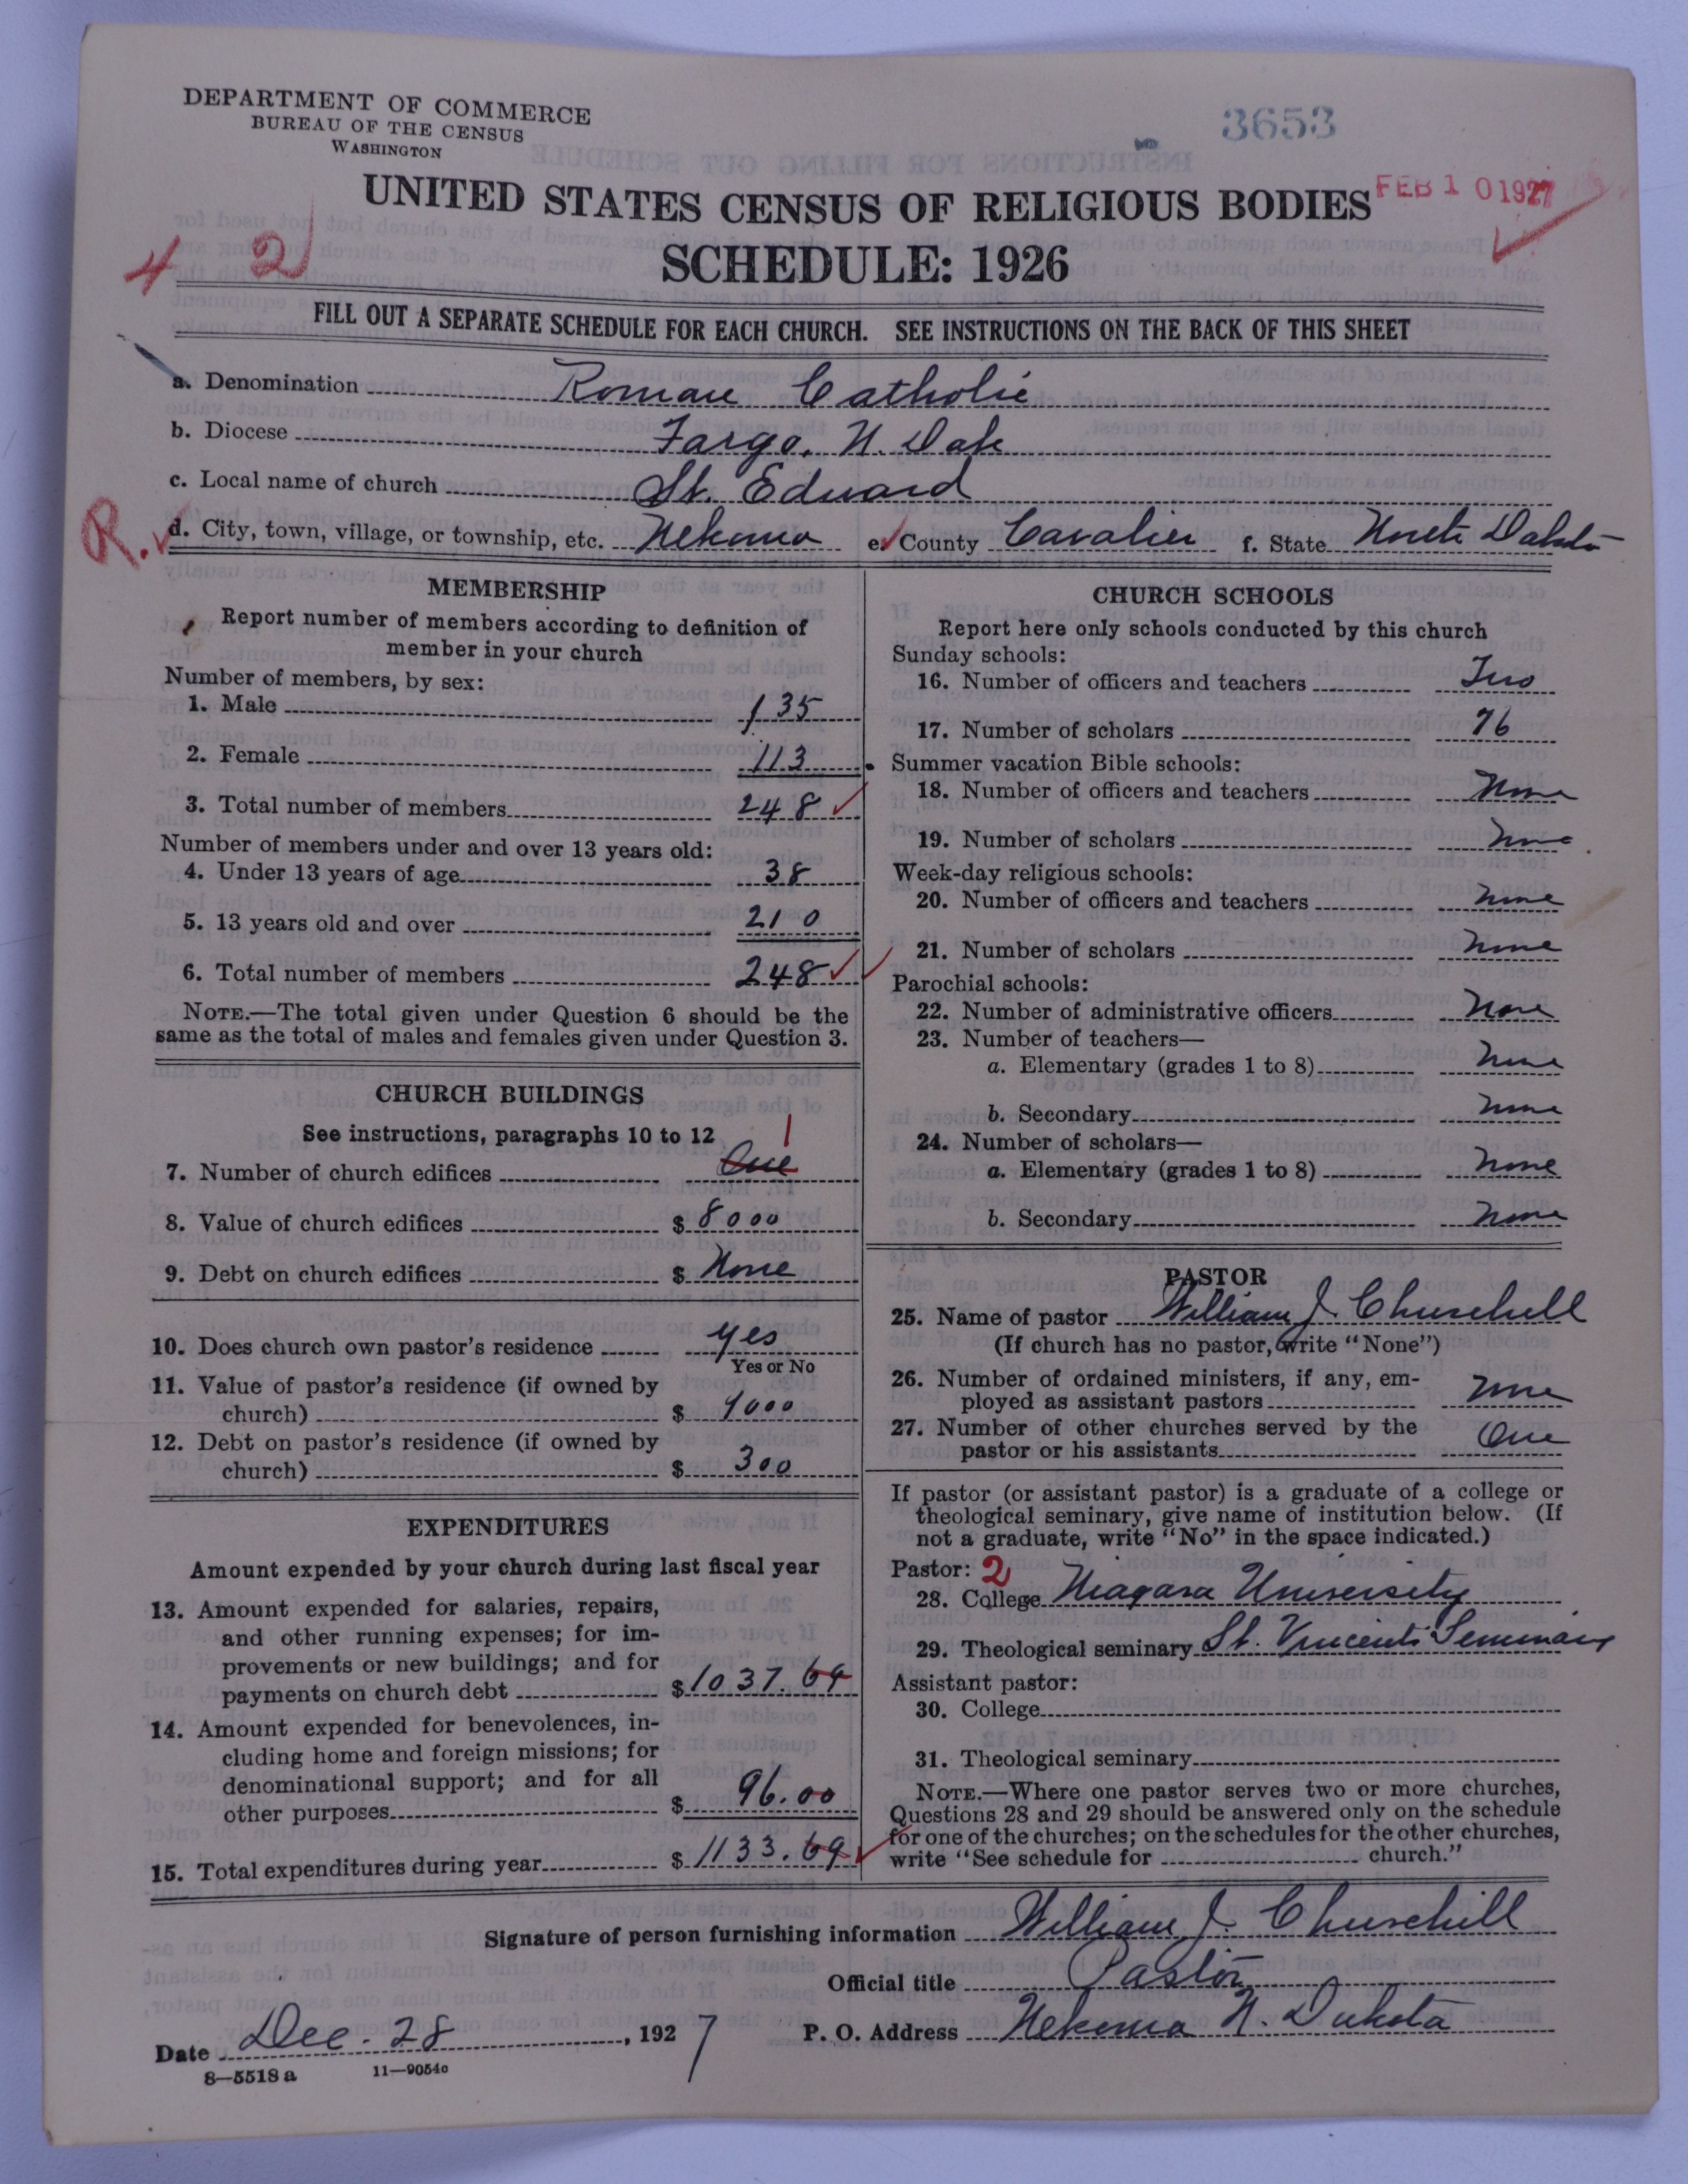 DEPARTMENT OF COMMERCE
BUREAU OF THE CENSUS
WASHINGTON
3653
UNITED STATES CENSUS OF RELIGIOUS BODIES
FEB 10 1927
SCHEDULE: 1926
4 2
FILL OUT A SEPARATE SCHEDULE FOR EACH CHURCH. SEE INSTRUCTIONS ON THE BACK OF THIS SHEET
a. Denomination Roman Catholic
b. Diocese Fargo, N. Dak
c. Local name of church St. Edward
R. d. City, town, village, or township, etc. Nekoma e. County Cavalier f. State North Dakota
MEMBERSHIP
Report number of members according to definition of
member in your church
Number of members, by sex:
1. Male 135
2. Female 113
3. Total number of members 248
Number of members under and over 13 years old:
4. Under 13 years of age 38
5. 13 years old and over 210
6. Total number of members 248
NOTE.—The total given under Question 6 should be the
same as the total of males and females given under Question 3.
CHURCH BUILDINGS
See instructions, paragraphs 10 to 12
1
7. Number of church edifices One
8. Value of church edifices $ 8000
9. Debt on church edifices $ None
10. Does church own pastor's residence yes
Yes or No
11. Value of pastor's residence (if owned by
church) $ 4000
12. Debt on pastor's residence (if owned by
church) $ 300
EXPENDITURES
Amount expended by your church during last fiscal year
13. Amount expended for salaries, repairs,
and other running expenses; for im-
provements or new buildings; and for
payments on church debt $ 1037.69
14. Amount expended for benevolences, in-
cluding home and foreign missions; for
denominational support; and for all
other purposes $ 96.00
15. Total expenditures during year $ 1133.69
CHURCH SCHOOLS
Report here only schools conducted by this church
Sunday schools:
16. Number of officers and teachers Two
17. Number of scholars 76
Summer vacation Bible schools:
18. Number of officers and teachers None
19. Number of scholars None
Week-day religious schools:
20. Number of officers and teachers None
21. Number of scholars None
Parochial schools:
22. Number of administrative officers None
23. Number of teachers—
a. Elementary (grades 1 to 8) None
b. Secondary None
24. Number of scholars—
a. Elementary (grades 1 to 8) None
b. Secondary None
PASTOR
25. Name of pastor William J. Churchill
(If church has no pastor, write "None")
26. Number of ordained ministers, if any, em-
ployed as assistant pastors None
27. Number of other churches served by the
pastor or his assistants One
If pastor (or assistant pastor) is a graduate of a college or
theological seminary, give name of institution below. (If
not a graduate, write "No" in the space indicated.)
Pastor: 2
28. College Niagara University
29. Theological seminary St. Vincents Seminary
Assistant pastor:
30. College
31. Theological seminary
NOTE.—Where one pastor serves two or more churches,
Questions 28 and 29 should be answered only on the schedule
for one of the churches; on the schedules for the other churches,
write "See schedule for church."
Signature of person furnishing information William J. Churchill
Official title Pastor
Date Dec. 28, 1927 P. O. Address Nekoma N. Dakota
8—5518 a 11—9054c